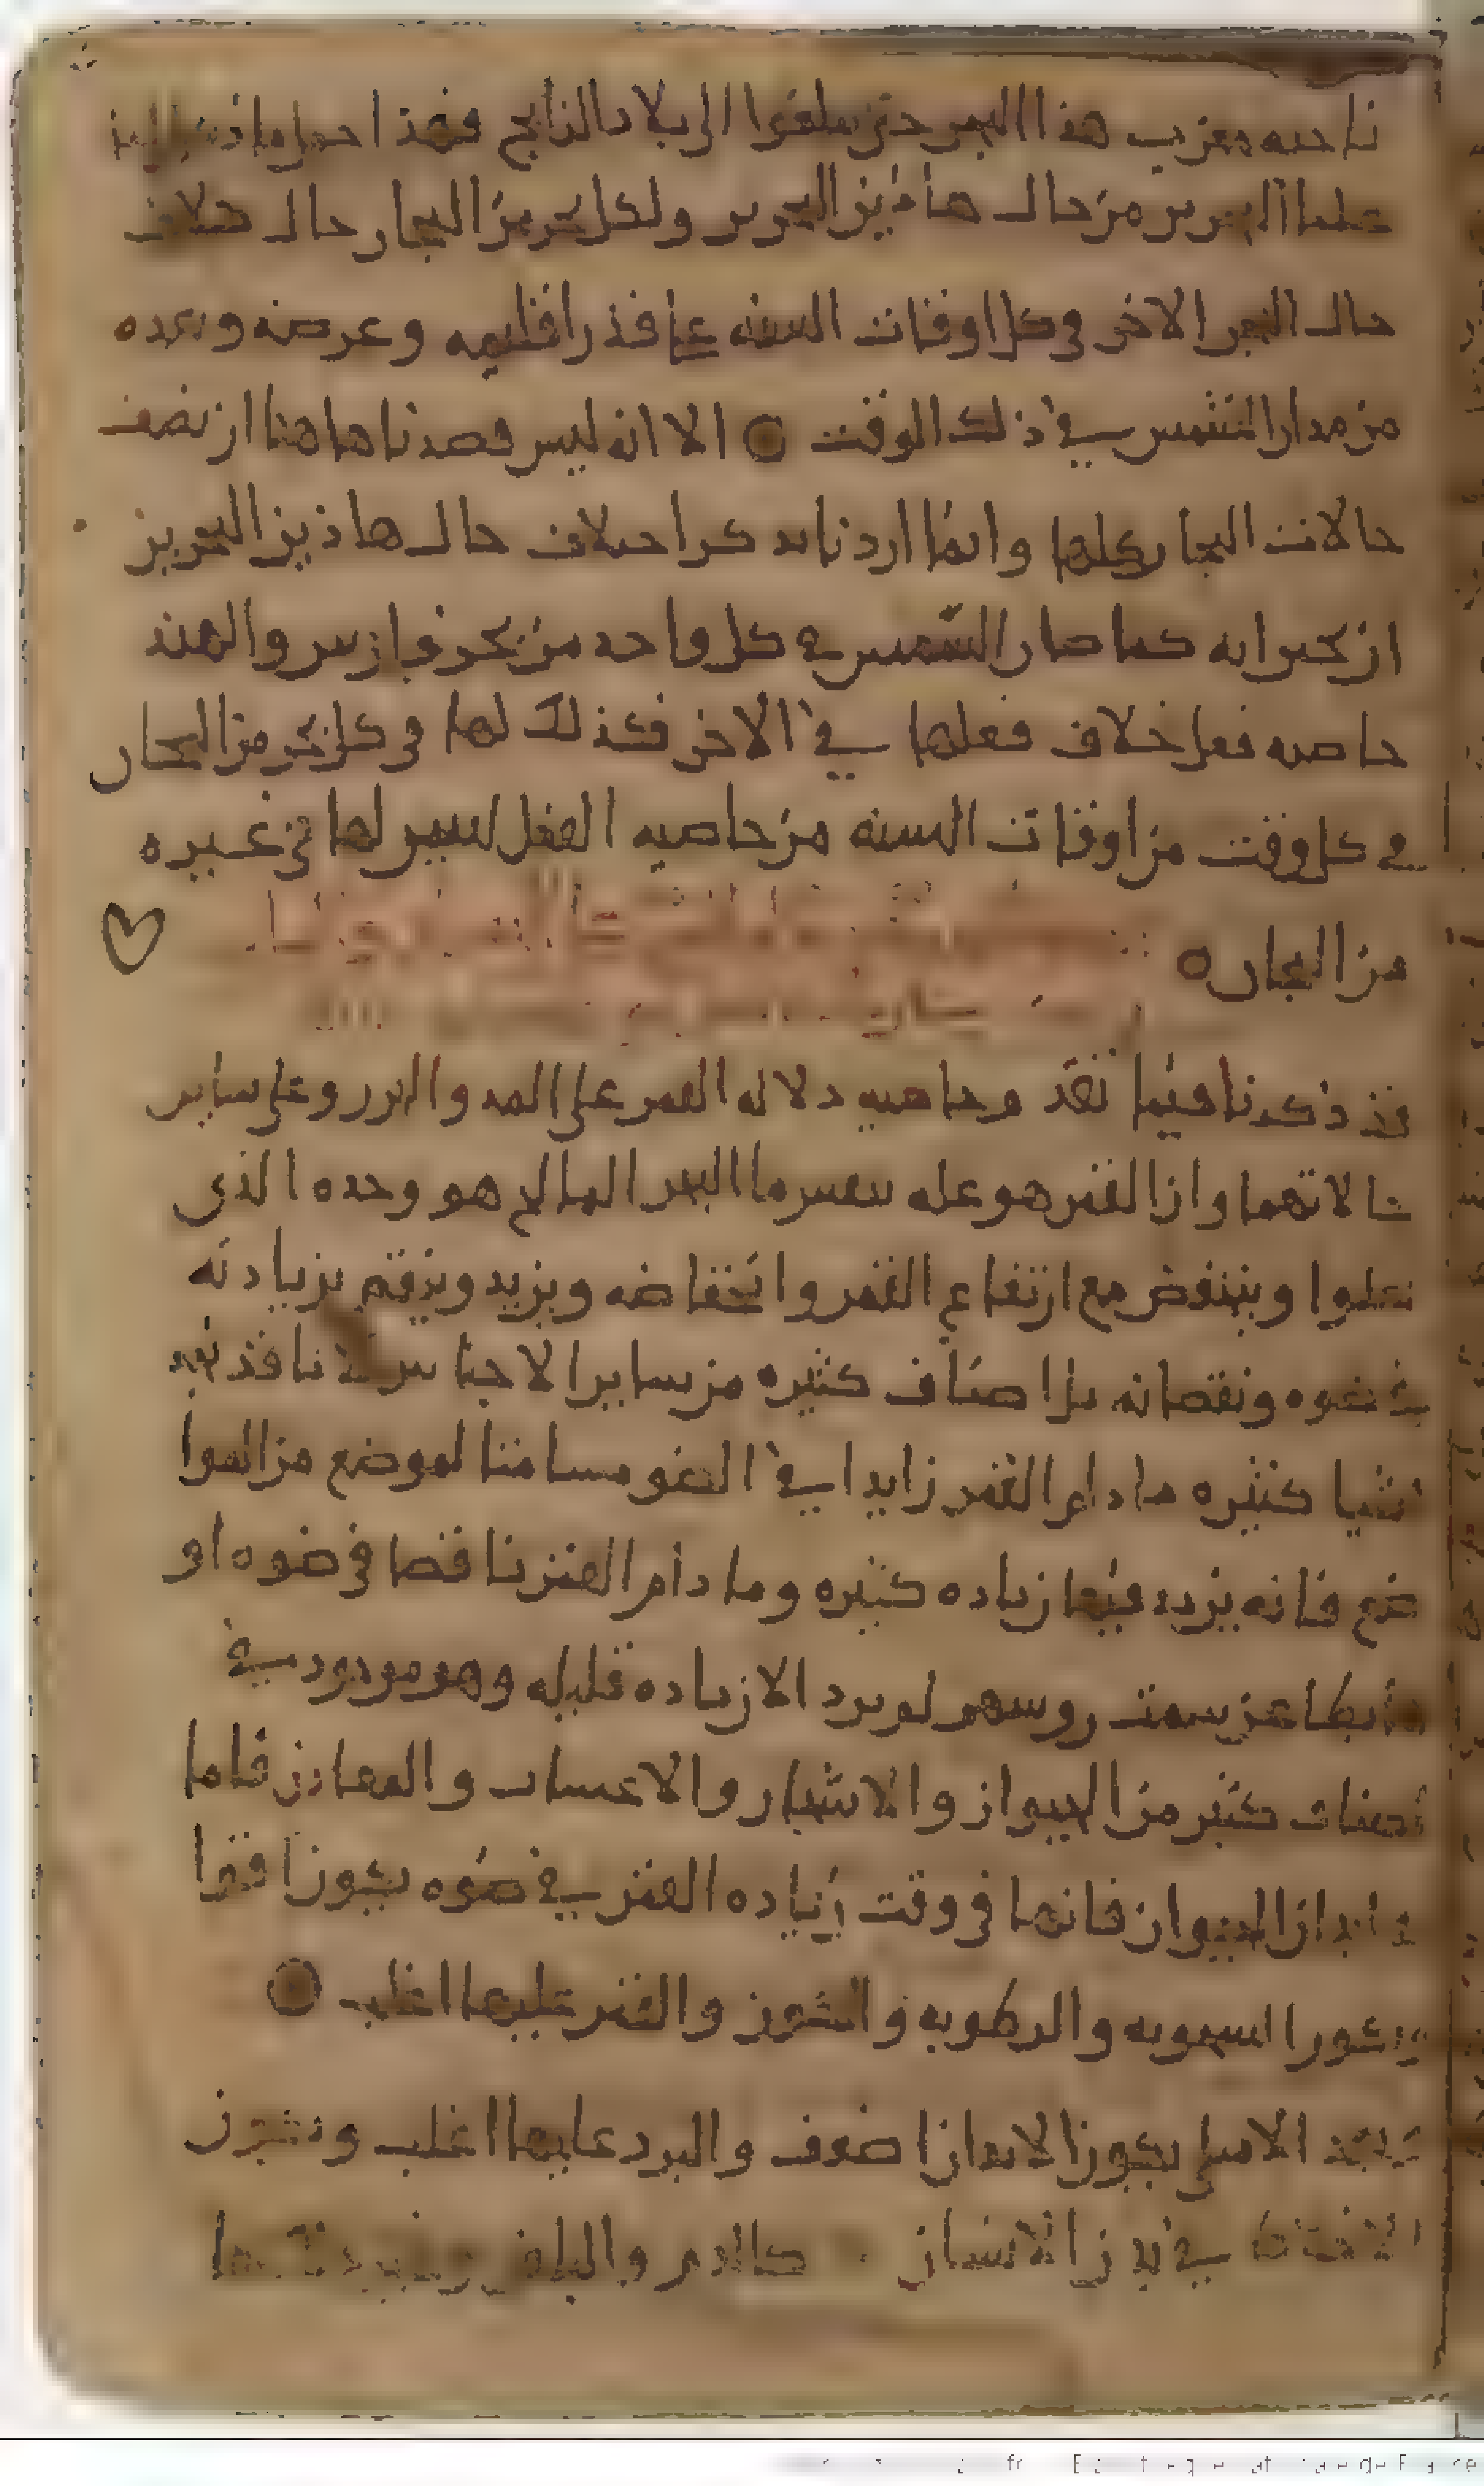 ناحيه مغرب هذا البحر حتى يبلغوا الى بلاد الزابج فهذا
علما البحريين من حال هاذين البحرين ولكل بحر من البحار حال خلاف
حال البحر الاخر في كل اوقات السنه على قدر اقليمه وعرضه وبعده
من مدار الشمس في ذلك الوقت ○ الا انه ليس قصدنا هاهنا ان نصف
حالات البحار كلها وانما اردنا بذكر اختلاف حال هاذين البحرين
ان نخبر انه كما صار للشمس في كل واحد من بحر فارس والهند
خاصيه فعل خلاف فعلها في الاخر فكذلك لها في كل بحر من البحار
في كل وقت من اوقات السنه من خاصيه الفعل ليس لها في غيره
من البحار ○
قد ذكرنا فيما تقدم خاصيه دلاله القمر على المد والجزر وعلى ساير
حالاتهما وان القمر هو عله تنفس ما البحر المالح هو وحده الذى
يعلوا وينخفض مع ارتفاع القمر وانخفاضه ويزيد وينقص بزيادته
في ضوه ونقصانه بل اصناف كثيره من ساير الاجناس لانا قد نجد
اشيا كثيره ما دام القمر زايدا في الضو مسامتا لموضع من المواـ
ضع فانه يزيد فيها زياده كثيره وما دام القمر ناقصا في ضوه او
هابطا عن سمت روسهم لم يزد الا زياده قليله وهو موجود في
اصناف كثير من الحيوان والاشجار والاعشاب والمعادن فاما
ابدان الحيوان فانها في وقت زياده القمر في ضوه يكون اقوا
ويكون السخونه والرطوبه والكون والنمو عليها اغلب ○
وبعد الامتلى يكون الابدان اضعف والبرد عليها اغلب وتكون
الاخلاط في بدن الانسان كالدم والبلغم وغير